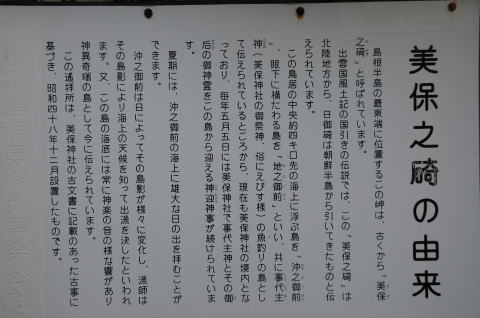 美保之碕の由来
島根半島の最東端に位置するこの岬は、古くから「美保
之碕」と呼ばれています。
出雲国風土記の国引きの伝説では、この「美保之碕」は
北陸地方から、日御碕は朝鮮半島から引いてきたものと伝
えられています。
この鳥居の中央約四キロ先の海上に浮ぶ島を「沖之御前
」、眼下に横たわる島を「地之御前」といい、共に事代主
神(美保神社の御祭神、俗にえびす様)の魚釣りの島とし
て伝えられているところから、現在も美保神社の境内とな
っており、毎年五月五日には美保神社で事代主神とその御
后の御神霊をこの島から迎える神迎神事が続けられていま
す。
夏期には、沖之御前の海上に雄大な日の出を拝むことが
できます。
沖之御前は日によってその島影が様々に変化し、漁師は
その島影により海上の天候を知って出漁を決したといわれ
ます。又、この島の海底には常に神楽の音の様な響があり
神異奇瑞の島として今に伝えられています。
この遙拝所は、美保神社の古文書に記載のあった古事に
基づき、昭和四十八年十二月設置したものです。